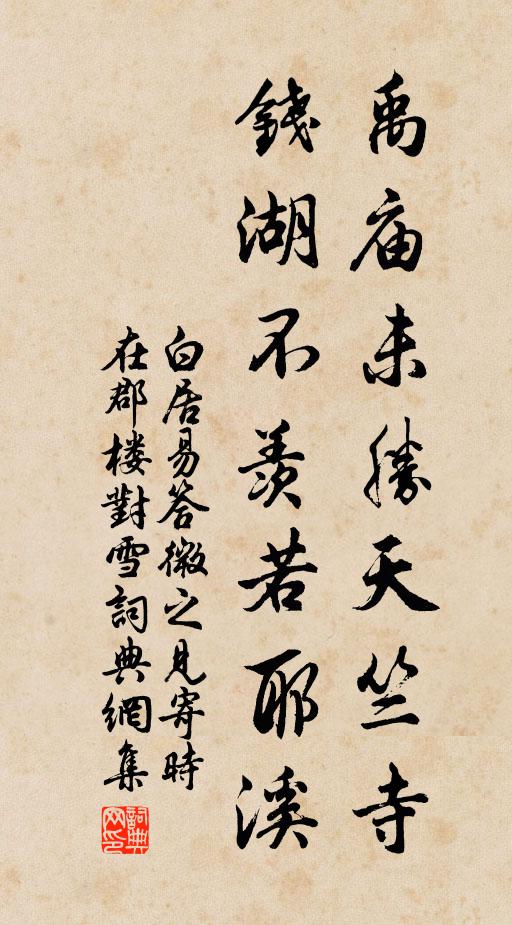 禹庙未勝天竺寺
錢湖不羡若耶溪
白居易答微之見寄時
在郡楼對雪詞典網集
詞典
网印